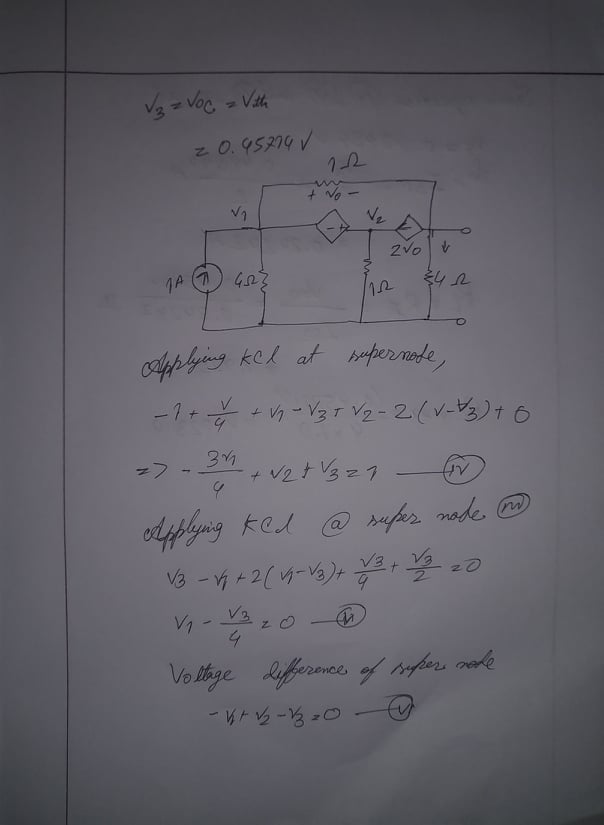 V3 = VOC = Vth
= 0.45714 V
1Ω
+ V0 -
V1
- +
V2
2V0
1A
4Ω
1Ω
4Ω
Applying KCl at supernode,
-1 + V/4 + V1 - V3 + V2 - 2(V-V3) + 0
=> - 3V1/4 + V2 + V3 = 1 — (iv)
Applying KCl @ super node
V3 - V1 + 2(V1-V3) + V3/4 + V3/2 = 0
V1 - V3/4 = 0
Voltage difference of super node
-V1 + V2 - V3 = 0 — (v)